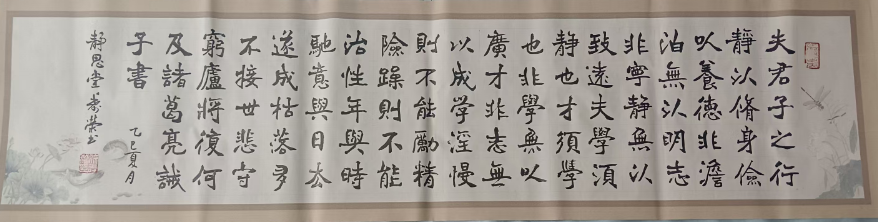 夫君子之行
静以脩身儉
以養德非澹
泊無以明志
非寧静無以
致遠夫學須
静也才須學
也非學無以
廣才非志無
以成学淫慢
則不能勵精
險躁則不能
治性年與時
馳意與日去
遂成枯落多
不接世悲守
窮廬將復何
及諸葛亮誡
子書
乙巳夏月
静思堂荣书